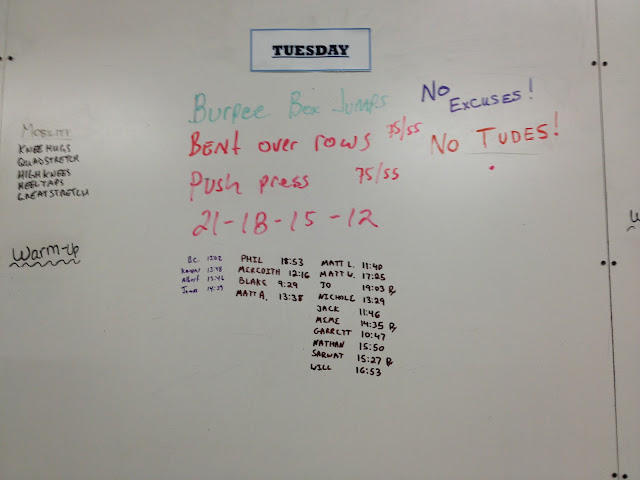 TUESDAY
Burpee Box Jumps
Bent over rows 75/55
Push press 75/55
21-18-15-12
No Excuses!
No Tudes!
Mobility
Knee Hugs
Quad Stretch
High Knees
Heel Taps
Great Stretch
Warm-up
B.C. 13:02
13:48
Albert 13:46
James 14:29
Phil 18:53
Meredith 12:16
Blake 9:29
Matt A. 13:38
Matt L. 11:40
Matt U. 17:25
Jo 19:03 Rx
Nichole 13:29
Jack 11:46
Meme 14:35 Rx
Garrett 10:47
Nathan 15:50
Sarwat 15:27 Rx
Will 16:53